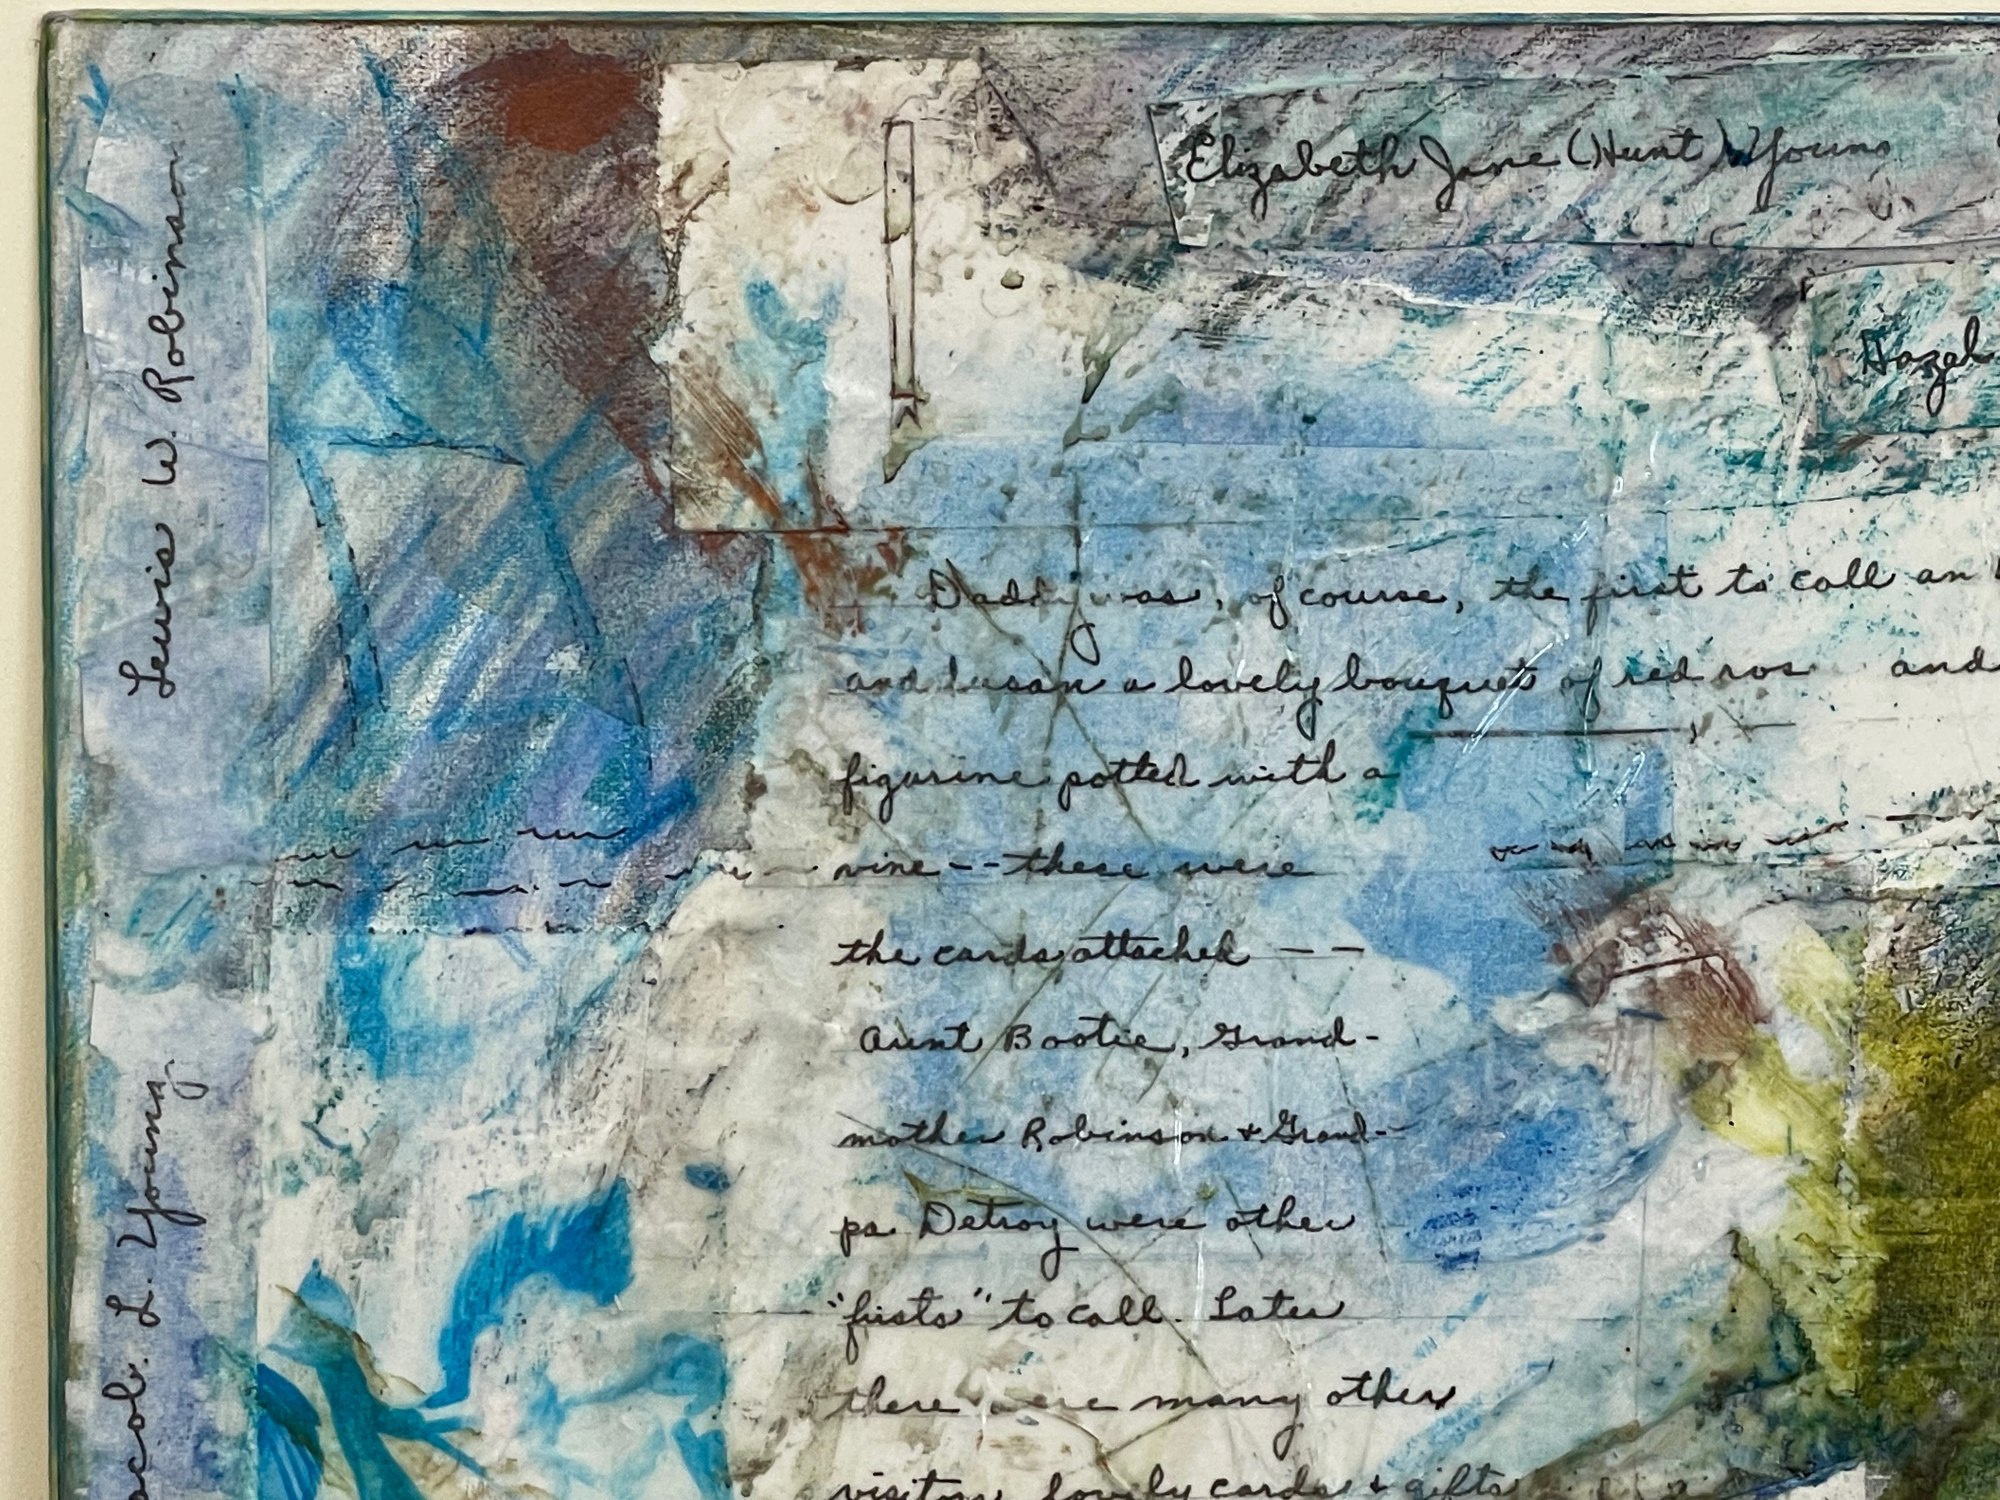 Elizabeth Jane (Hunt) Young
Hazel
Lewis W. Robinson
Daddy was, of course, the first to call an
and Susan a lovely bouquet of red ros and
figurine potted with a
vine -- these were
the cards attached --
Aunt Bootie, Grand-
mother Robinson & Grand-
pa Detroy were other
"firsts" to call. Later
there were many other
visitors, lovely cards & gifts
acob. L. Young